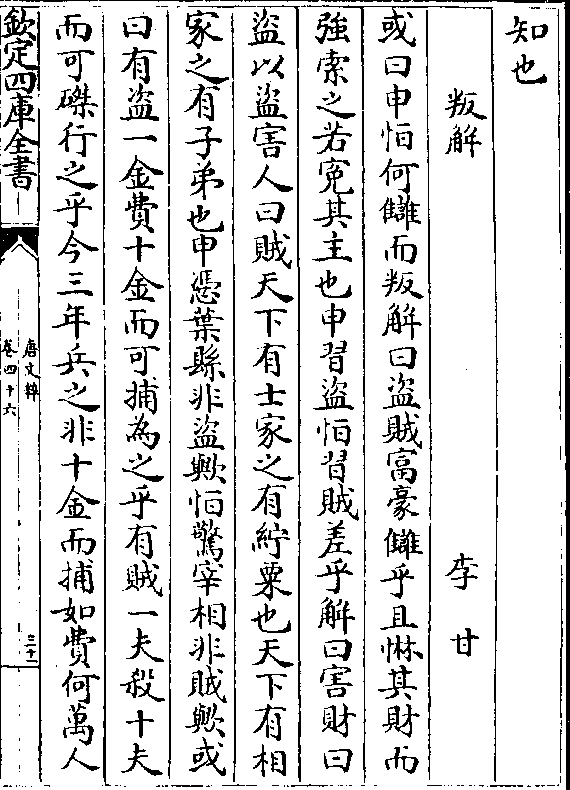 知也
叛解　李甘
或曰申怕何讎而叛解曰盜賊富豪讎乎且惏其財而
強索之若寃其主也申習盜怕習賊差乎解曰害財曰
盜以盜害人曰賊天下有士家之有紵粟也天下有相
家之有子弟也申憑葉縣非盜歟怕驚宰相非賊歟或
曰有盜一金費十金而可捕為之乎有賊一夫殺十夫
而可磔行之乎今三年兵之非十金而捕如費何萬人
欽定四庫全書
唐文粹
卷四十六
三十二